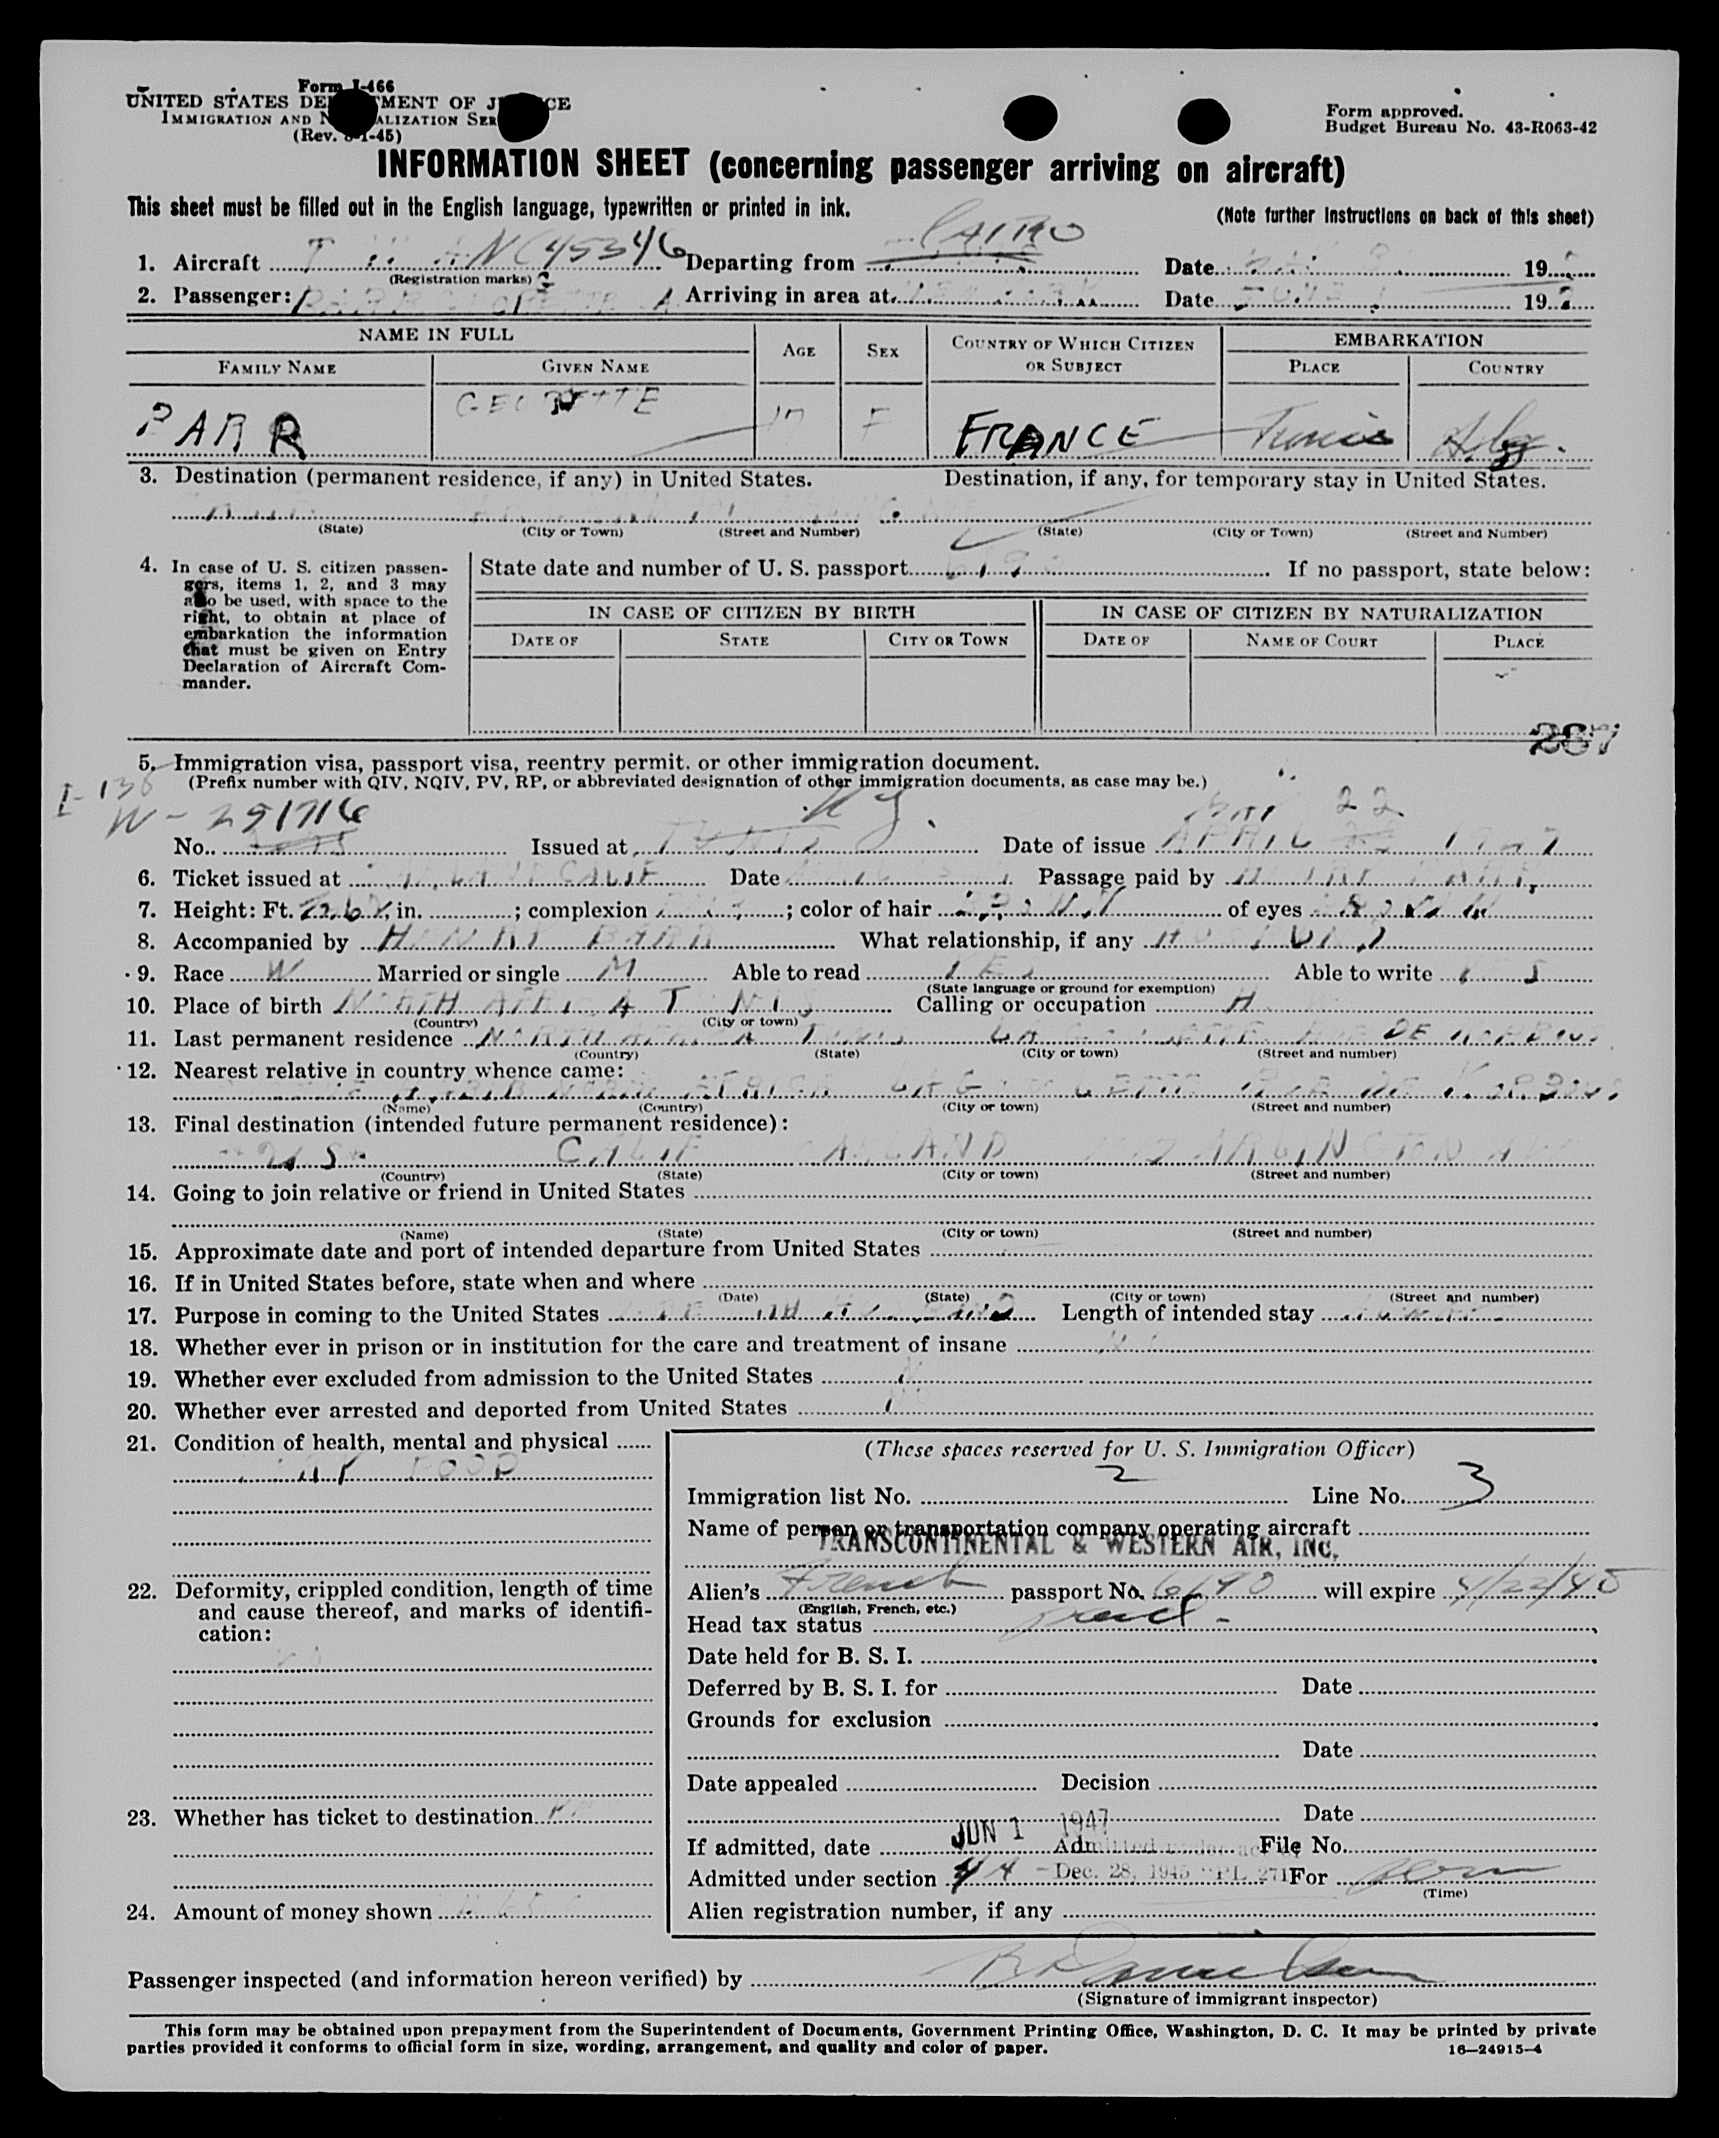 Form I-466
UNITED STATES DEPARTMENT OF JUSTICE
IMMIGRATION AND NATURALIZATION SER
(Rev. 8-1-45)
Form approved.
Budget Bureau No. 43-R063-42
INFORMATION SHEET (concerning passenger arriving on aircraft)
This sheet must be filled out in the English language, typewritten or printed in ink.
(Note further instructions on back of this sheet)
1. Aircraft NC 45346 Departing from CAIRO Date 19
(Registration marks)
2. Passenger: Arriving in area at Date JUNE 1 19
NAME IN FULL
AGE
SEX
COUNTRY OF WHICH CITIZEN OR SUBJECT
EMBARKATION
FAMILY NAME
GIVEN NAME
PLACE
COUNTRY
BARR GEORGETTE F FRANCE Tunis Alg.
3. Destination (permanent residence, if any) in United States. Destination, if any, for temporary stay in United States.
(State) (City or Town) (Street and Number) (State) (City or Town) (Street and Number)
4. In case of U. S. citizen passengers, items 1, 2, and 3 may also be used, with space to the right, to obtain at place of embarkation the information that must be given on Entry Declaration of Aircraft Commander.
State date and number of U. S. passport If no passport, state below:
IN CASE OF CITIZEN BY BIRTH
IN CASE OF CITIZEN BY NATURALIZATION
DATE OF STATE CITY OR TOWN DATE OF NAME OF COURT PLACE
267
5. Immigration visa, passport visa, reentry permit, or other immigration document.
(Prefix number with QIV, NQIV, PV, RP, or abbreviated designation of other immigration documents, as case may be.)
I-136
W-291716
N.Y.
22
No. Issued at TUNIS Date of issue APRIL 1947
6. Ticket issued at CALIF Date Passage paid by HENRY BARR
7. Height: Ft. in. ; complexion ; color of hair BROWN of eyes BROWN
8. Accompanied by HENRY BARR What relationship, if any HUSBAND
9. Race W Married or single M Able to read YES Able to write YES
(State language or ground for exemption)
10. Place of birth NORTH AFRICA TUNIS Calling or occupation H
(Country) (City or town)
11. Last permanent residence NORTH AFRICA TUNIS LA GOULETTE RUE DE
(Country) (State) (City or town) (Street and number)
12. Nearest relative in country whence came:
NORTH AFRICA LA GOULETTE RUE DE
(Name) (Country) (City or town) (Street and number)
13. Final destination (intended future permanent residence):
U.S. CALIF OAKLAND ARLINGTON AVE
(Country) (State) (City or town) (Street and number)
14. Going to join relative or friend in United States
(Name) (State) (City or town) (Street and number)
15. Approximate date and port of intended departure from United States
16. If in United States before, state when and where
(Date) (State) (City or town) (Street and number)
17. Purpose in coming to the United States Length of intended stay
18. Whether ever in prison or in institution for the care and treatment of insane NO
19. Whether ever excluded from admission to the United States
20. Whether ever arrested and deported from United States NO
21. Condition of health, mental and physical
VERY GOOD
22. Deformity, crippled condition, length of time and cause thereof, and marks of identification:
NO
23. Whether has ticket to destination
24. Amount of money shown
(These spaces reserved for U. S. Immigration Officer)
Immigration list No. 2 Line No. 3
Name of person or transportation company operating aircraft
TRANSCONTINENTAL & WESTERN AIR, INC.
Alien's French passport No. 6190 will expire 4/22/48
(English, French, etc.)
Head tax status
Date held for B. S. I.
Deferred by B. S. I. for Date
Grounds for exclusion
Date
Date appealed Decision
Date
If admitted, date JUN 1 1947 Admitted under act File No.
Admitted under section 4A Dec. 28, 1945 PL 271 For perm
(Time)
Alien registration number, if any
Passenger inspected (and information hereon verified) by
(Signature of immigrant inspector)
This form may be obtained upon prepayment from the Superintendent of Documents, Government Printing Office, Washington, D. C. It may be printed by private
parties provided it conforms to official form in size, wording, arrangement, and quality and color of paper.
16—24915-4